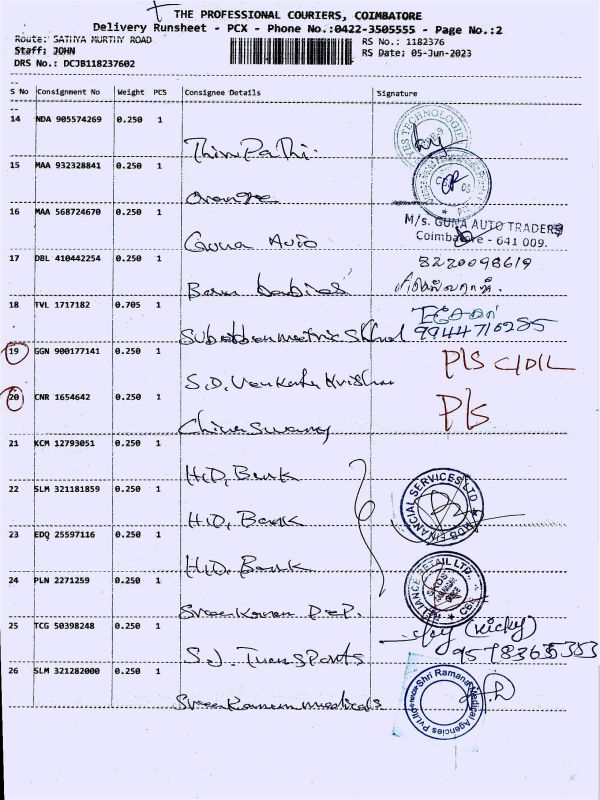 THE PROFESSIONAL COURIERS, COIMBATORE
Delivery Runsheet - PCX - Phone No.:0422-3505555 - Page No.:2
Route: SATHYA MURTHY ROAD
RS No.: 1182376
Staff: JOHN
RS Date: 05-Jun-2023
DRS No.: DCJB118237602
S No Consignment No Weight PCS Consignee Details Signature
14 NDA 905574269 0.250 1
YES TECHNOLOGIES
Thiru Pathi.
15 MAA 932328841 0.250 1
orange
16 MAA 568724670 0.250 1
M/s. GUNA AUTO TRADERS
Coimbatore - 641 009.
Guna Auto
17 DBL 410442254 0.250 1
8220098619
18 TVL 1717182 0.705 1
9944716285
19 GGN 900177141 0.250 1
P/S C/DL
S.D. Venkata Krishna
20 CNR 1654642 0.250 1
P/S
Chinnswamy
21 KCM 12793051 0.250 1
H.D, Bank
22 SLM 321181859 0.250 1
HDB FINANCIAL SERVICES LTD
H.D, Bank
23 EDQ 25597116 0.250 1
H.D. Bank
24 PLN 2271259 0.250 1
RELIANCE RETAIL LTD.
25 TCG 50398248 0.250 1
(Vicky)
9578365383
S.J. Transports
26 SLM 321282000 0.250 1
Shri Ramana Medical Agencies Pvt.
medicals